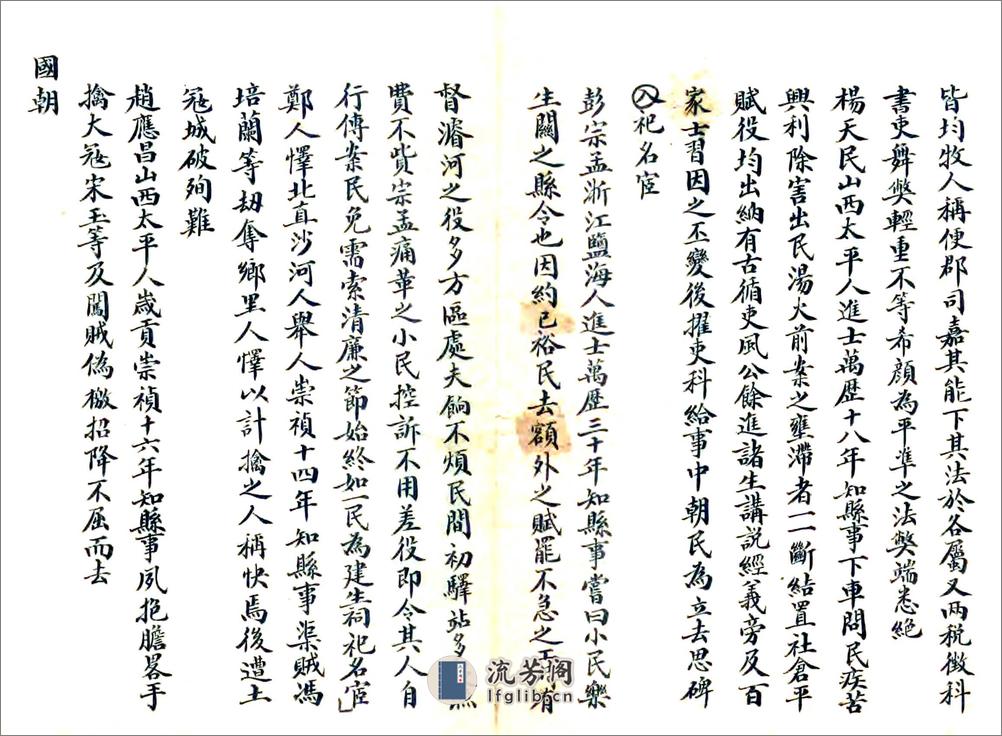 皆均牧人稱便郡司嘉其能下其法於各屬又兩稅徵科
書吏舞弊輕重不等希顏為平準之法弊端悉絕
楊天民山西太平人進士萬歷十八年知縣事下車問民疾苦
興利除害出民湯火前案之壅滯者一一斷結置社倉平
賦役均出納有古循吏風公餘進諸生講說經義旁及百
家士習因之丕變後擢吏科給事中朝民為立去思碑
入祀名宦
彭宗孟浙江鹽海人進士萬歷三十年知縣事嘗曰小民樂
生關之縣令也因約己裕民去額外之賦罷不急之
督濬河之役多方區處夫餉不煩民間初驛站多
費不貲宗孟痛革之小民控訴不用差役即令其人自
行傳案民免需索清廉之節始終如一民為建生祠祀名宦
鄭人懌北直沙河人舉人崇禎十四年知縣事渠賊馮
培蘭等劫奪鄉里人懌以計擒之人稱快焉後遭土
寇城破殉難
趙應昌山西太平人歲貢崇禎十六年知縣事夙抱膽畧手
擒大寇宋玉等及闖賊偽檄招降不屈而去
國朝
流芳阁
lfglib.cn